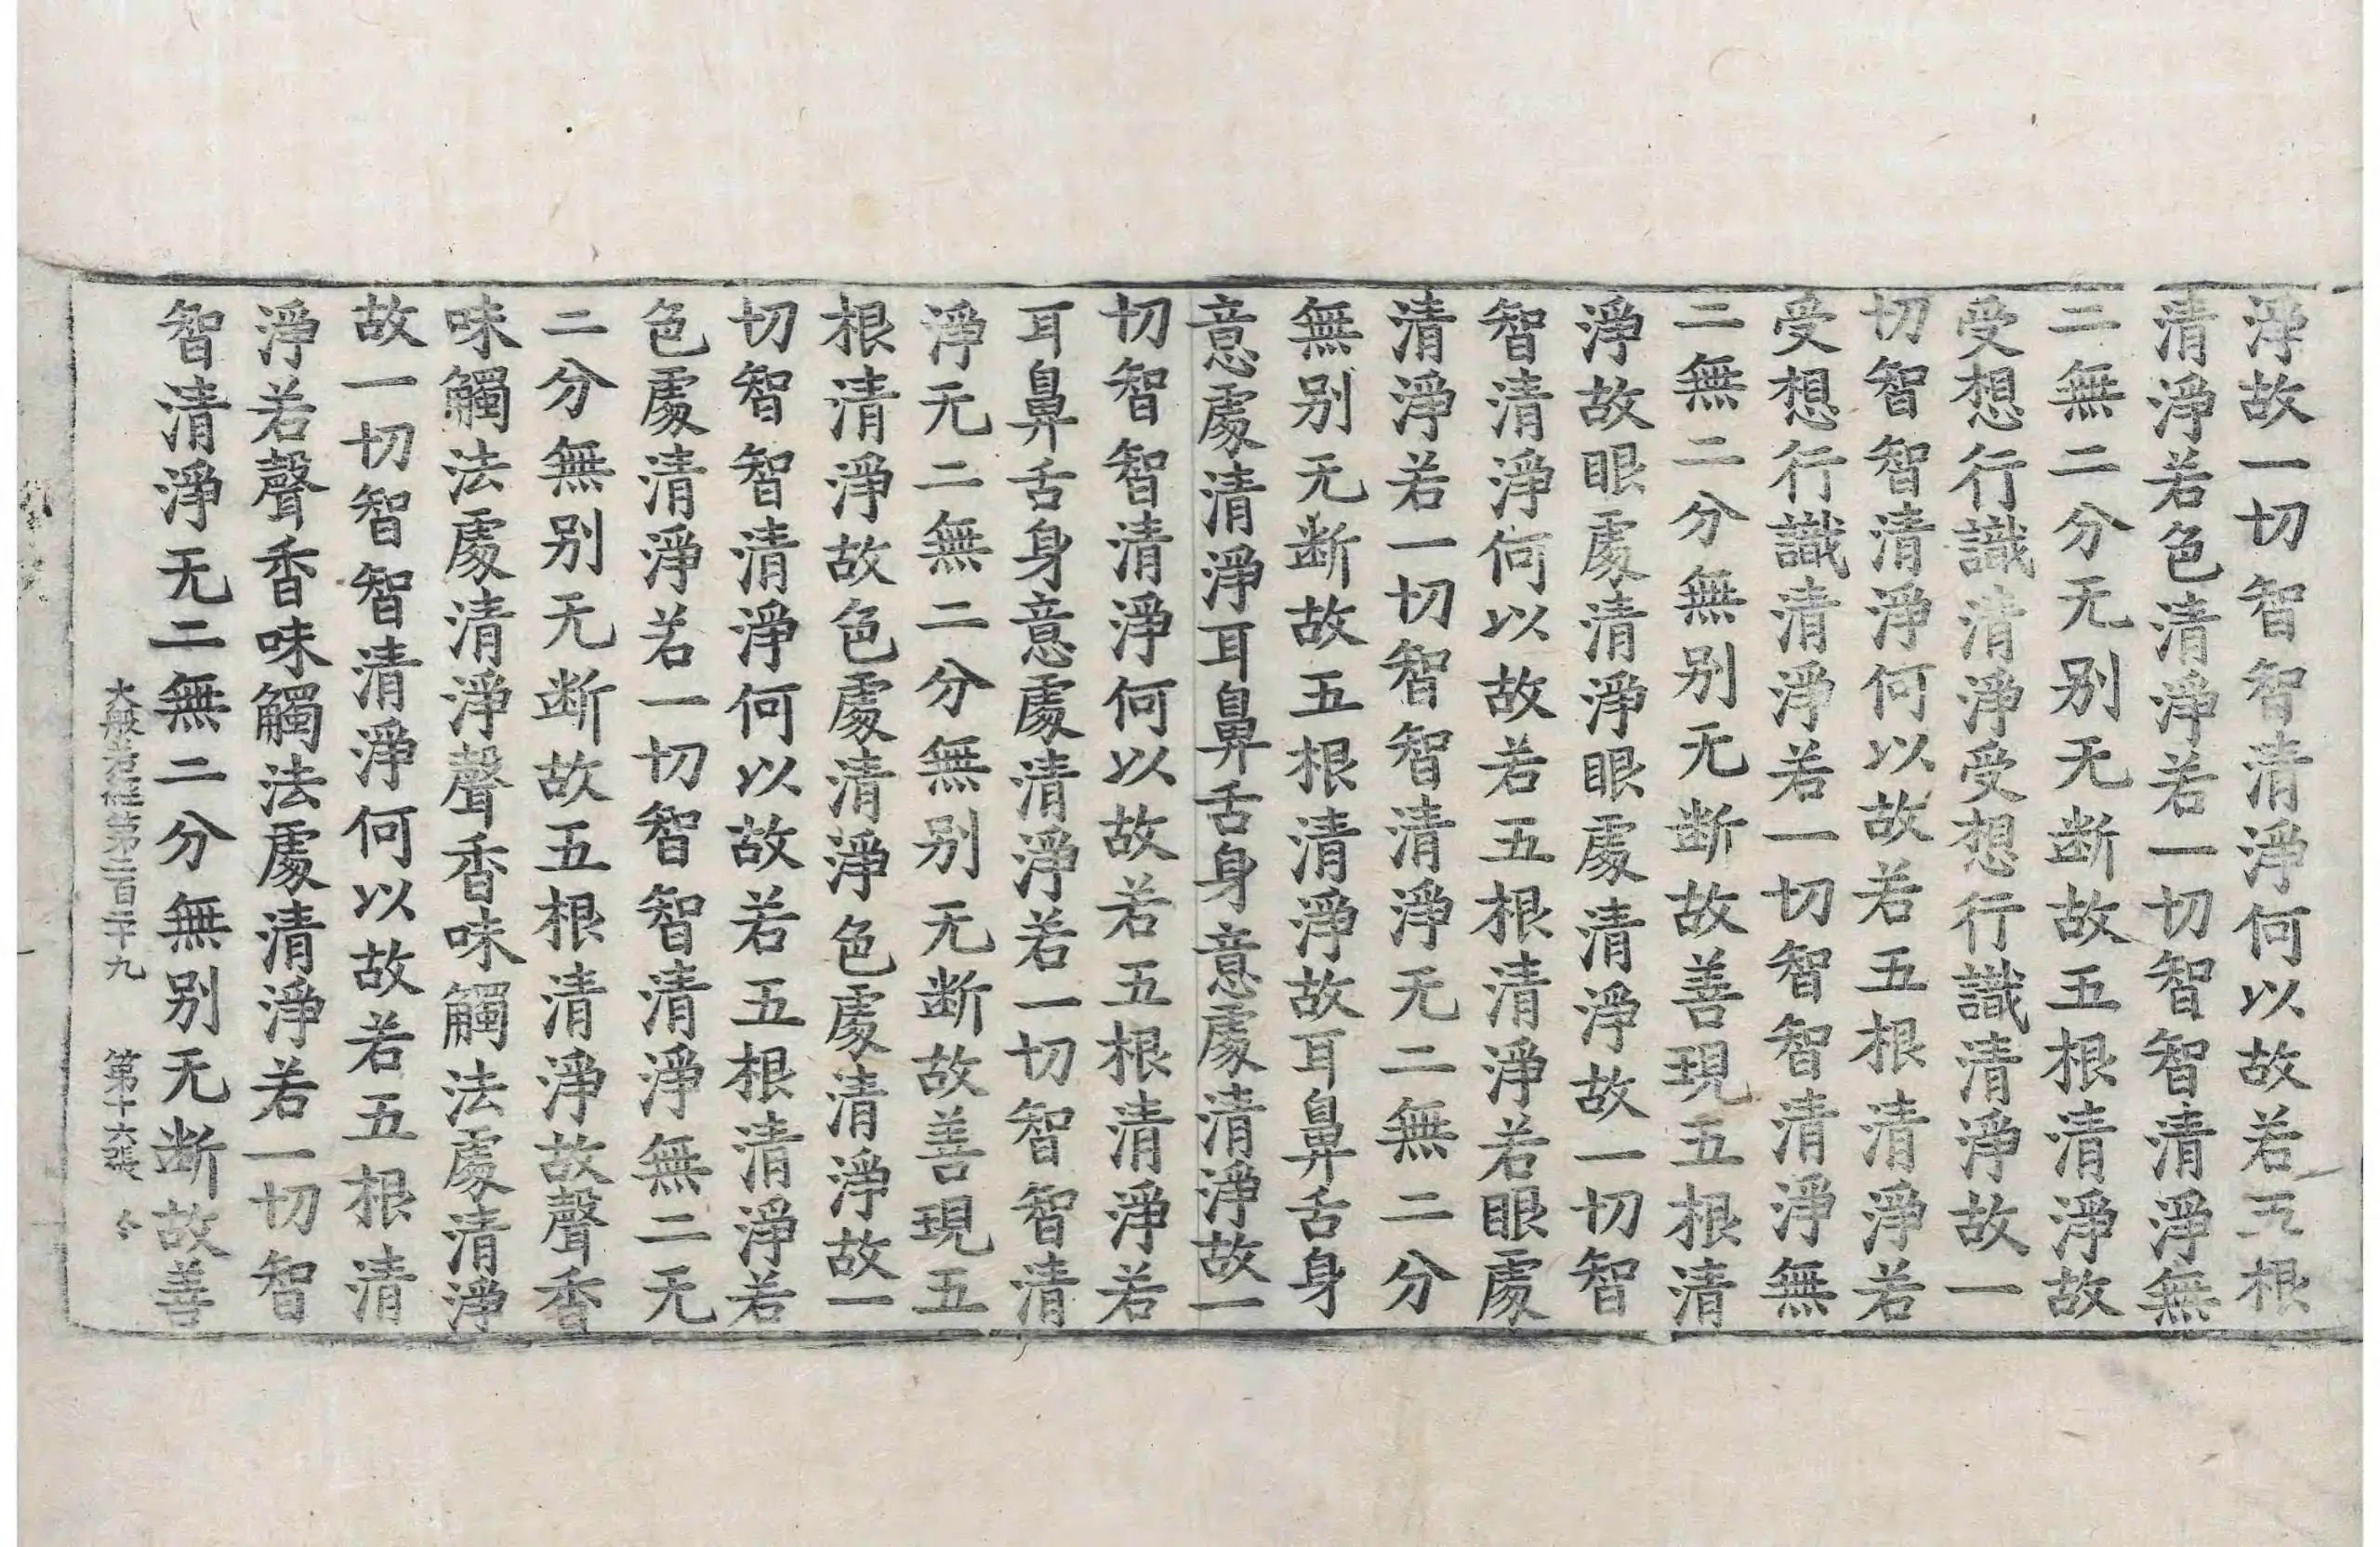 淨故一切智智清淨何以故若五根
清淨若色清淨若一切智智清淨無
二無二分无别无断故五根清淨故
受想行識清淨受想行識清淨故一
切智智清淨何以故若五根清淨若
受想行識清淨若一切智智清淨無
二無二分無别无断故善現五根清
淨故眼處清淨眼處清淨故一切智
智清淨何以故若五根清淨若眼處
清淨若一切智智清淨无二無二分
無别无断故五根清淨故耳鼻舌身
意處清淨耳鼻舌身意處清淨故一
切智智清淨何以故若五根清淨若
耳鼻舌身意處清淨若一切智智清
淨无二無二分無别无断故善現五
根清淨故色處清淨色處清淨故一
切智智清淨何以故若五根清淨若
色處清淨若一切智智清淨無二无
二分無别无断故五根清淨故聲香
味觸法處清淨聲香味觸法處清淨
故一切智智清淨何以故若五根清
淨若聲香味觸法處清淨若一切智
智清淨无二無二分無别无断故善
大般若經第二百二十九　第十六張